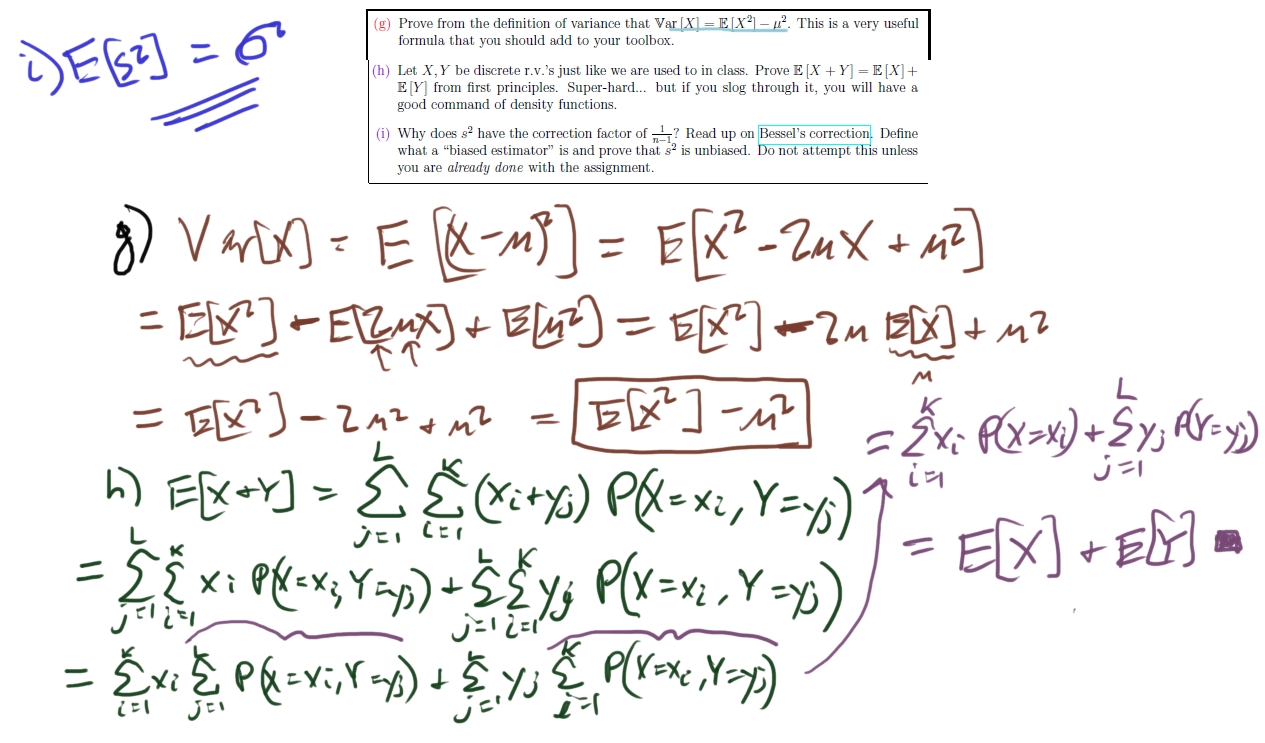 i) E[s²] = σ²
(g) Prove from the definition of variance that Var [X] = E [X²] − μ². This is a very useful
formula that you should add to your toolbox.
(h) Let X, Y be discrete r.v.'s just like we are used to in class. Prove E [X + Y] = E [X] +
E [Y] from first principles. Super-hard... but if you slog through it, you will have a
good command of density functions.
(i) Why does s² have the correction factor of 1/(n−1)? Read up on Bessel's correction. Define
what a “biased estimator” is and prove that s² is unbiased. Do not attempt this unless
you are already done with the assignment.
g) Var[X] = E[(X−μ)²] = E[X² − 2μX + μ²]
= E[X²] − E[2μX] + E[μ²] = E[X²] − 2μ E[X] + μ²
↑ ↑ μ
= E[X²] − 2μ² + μ² = E[X²] − μ²
h) E[X+Y] = ∑_{j=1}^{L} ∑_{i=1}^{K} (xᵢ+yⱼ) P(X=xᵢ, Y=yⱼ)
= ∑_{j=1}^{L} ∑_{i=1}^{K} xᵢ P(X=xᵢ, Y=yⱼ) + ∑_{j=1}^{L} ∑_{i=1}^{K} yⱼ P(X=xᵢ, Y=yⱼ)
= ∑_{i=1}^{K} xᵢ ∑_{j=1}^{L} P(X=xᵢ, Y=yⱼ) + ∑_{j=1}^{L} yⱼ ∑_{i=1}^{K} P(X=xᵢ, Y=yⱼ)
= ∑_{i=1}^{K} xᵢ P(X=xᵢ) + ∑_{j=1}^{L} yⱼ P(Y=yⱼ)
= E[X] + E[Y] ■